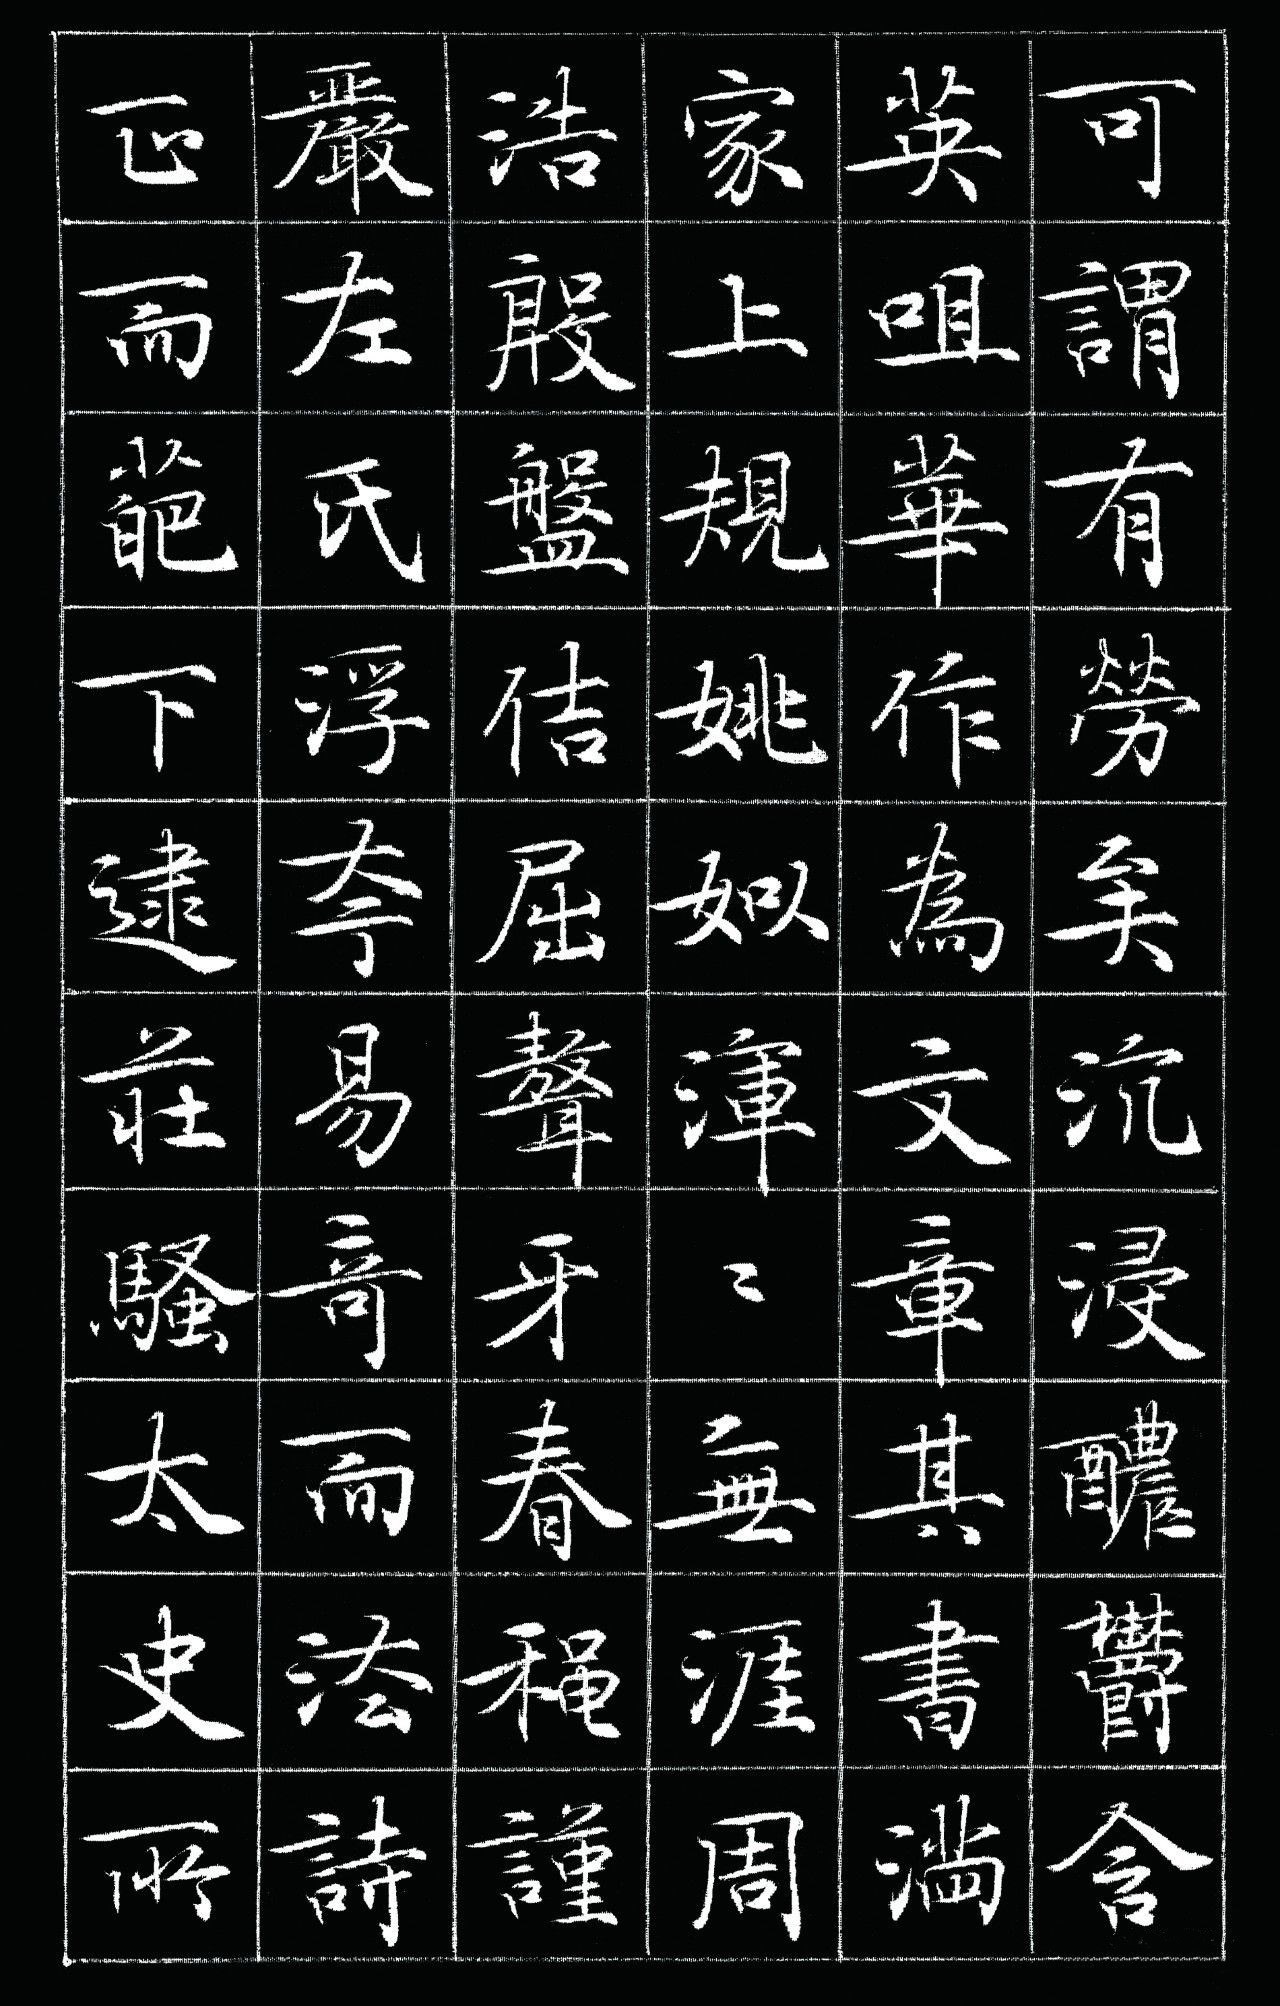 可謂有勞矣沉浸醲鬱含
英咀華作為文章其書滿
家上規姚姒渾〻無涯周
浩殷盤佶屈聱牙春秋謹
嚴左氏浮夸易奇而法詩
正而葩下逮莊騷太史所